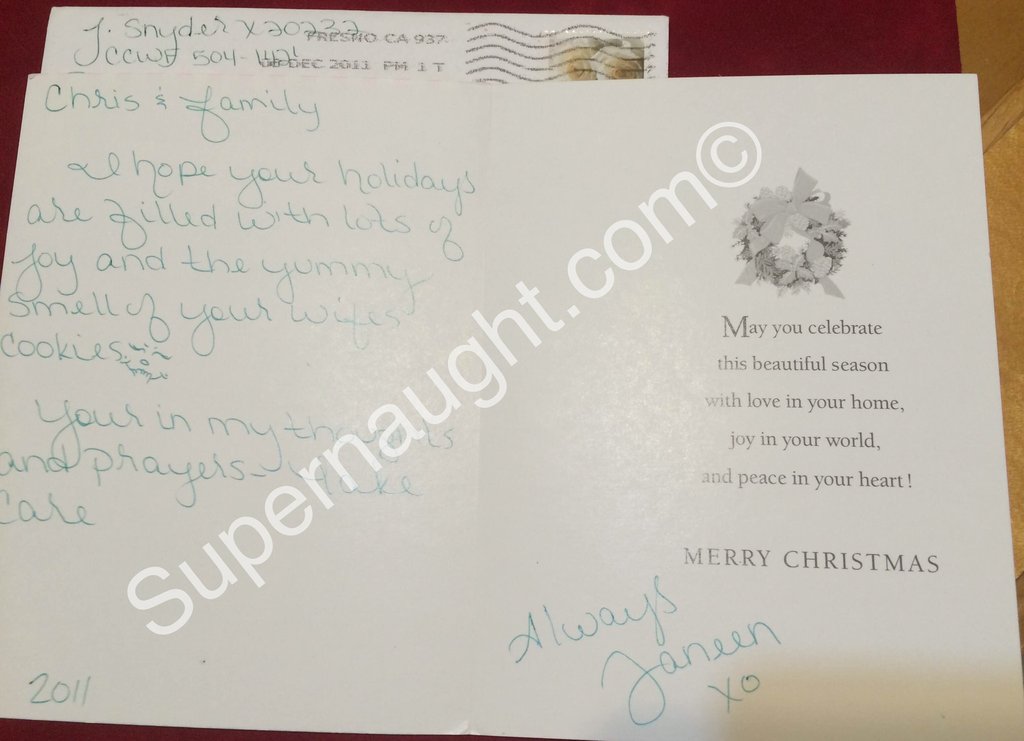 J. Snyder X20232
FRESNO CA 937
CCWF 504-
DEC 2011 PM 1 T
Chris & family
I hope your holidays
are filled with lots of
joy and the yummy
smell of your wifes
cookies.
Your in my thoughts
and prayers- take
care
2011
May you celebrate
this beautiful season
with love in your home,
joy in your world,
and peace in your heart!
MERRY CHRISTMAS
Always
Janeen
xo
Supernaught.com©